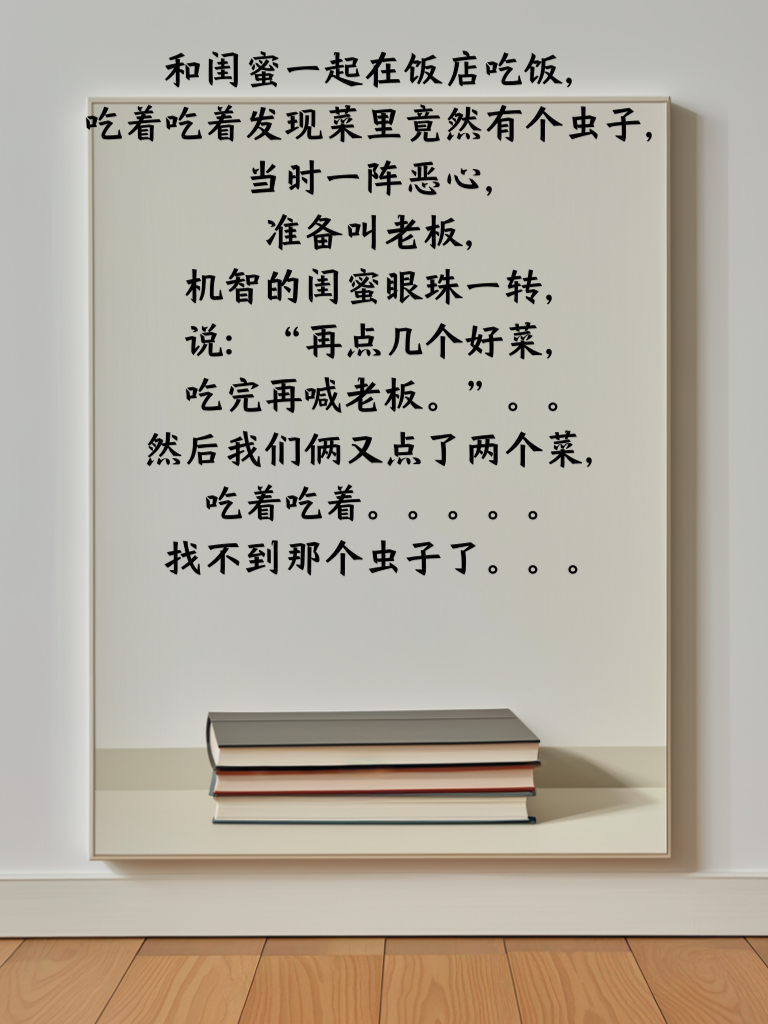 和闺蜜一起在饭店吃饭,
吃着吃着发现菜里竟然有个虫子,
当时一阵恶心,
准备叫老板,
机智的闺蜜眼珠一转,
说: “再点几个好菜,
吃完再喊老板。”。。
然后我们俩又点了两个菜,
吃着吃着。。。。。
找不到那个虫子了。。。